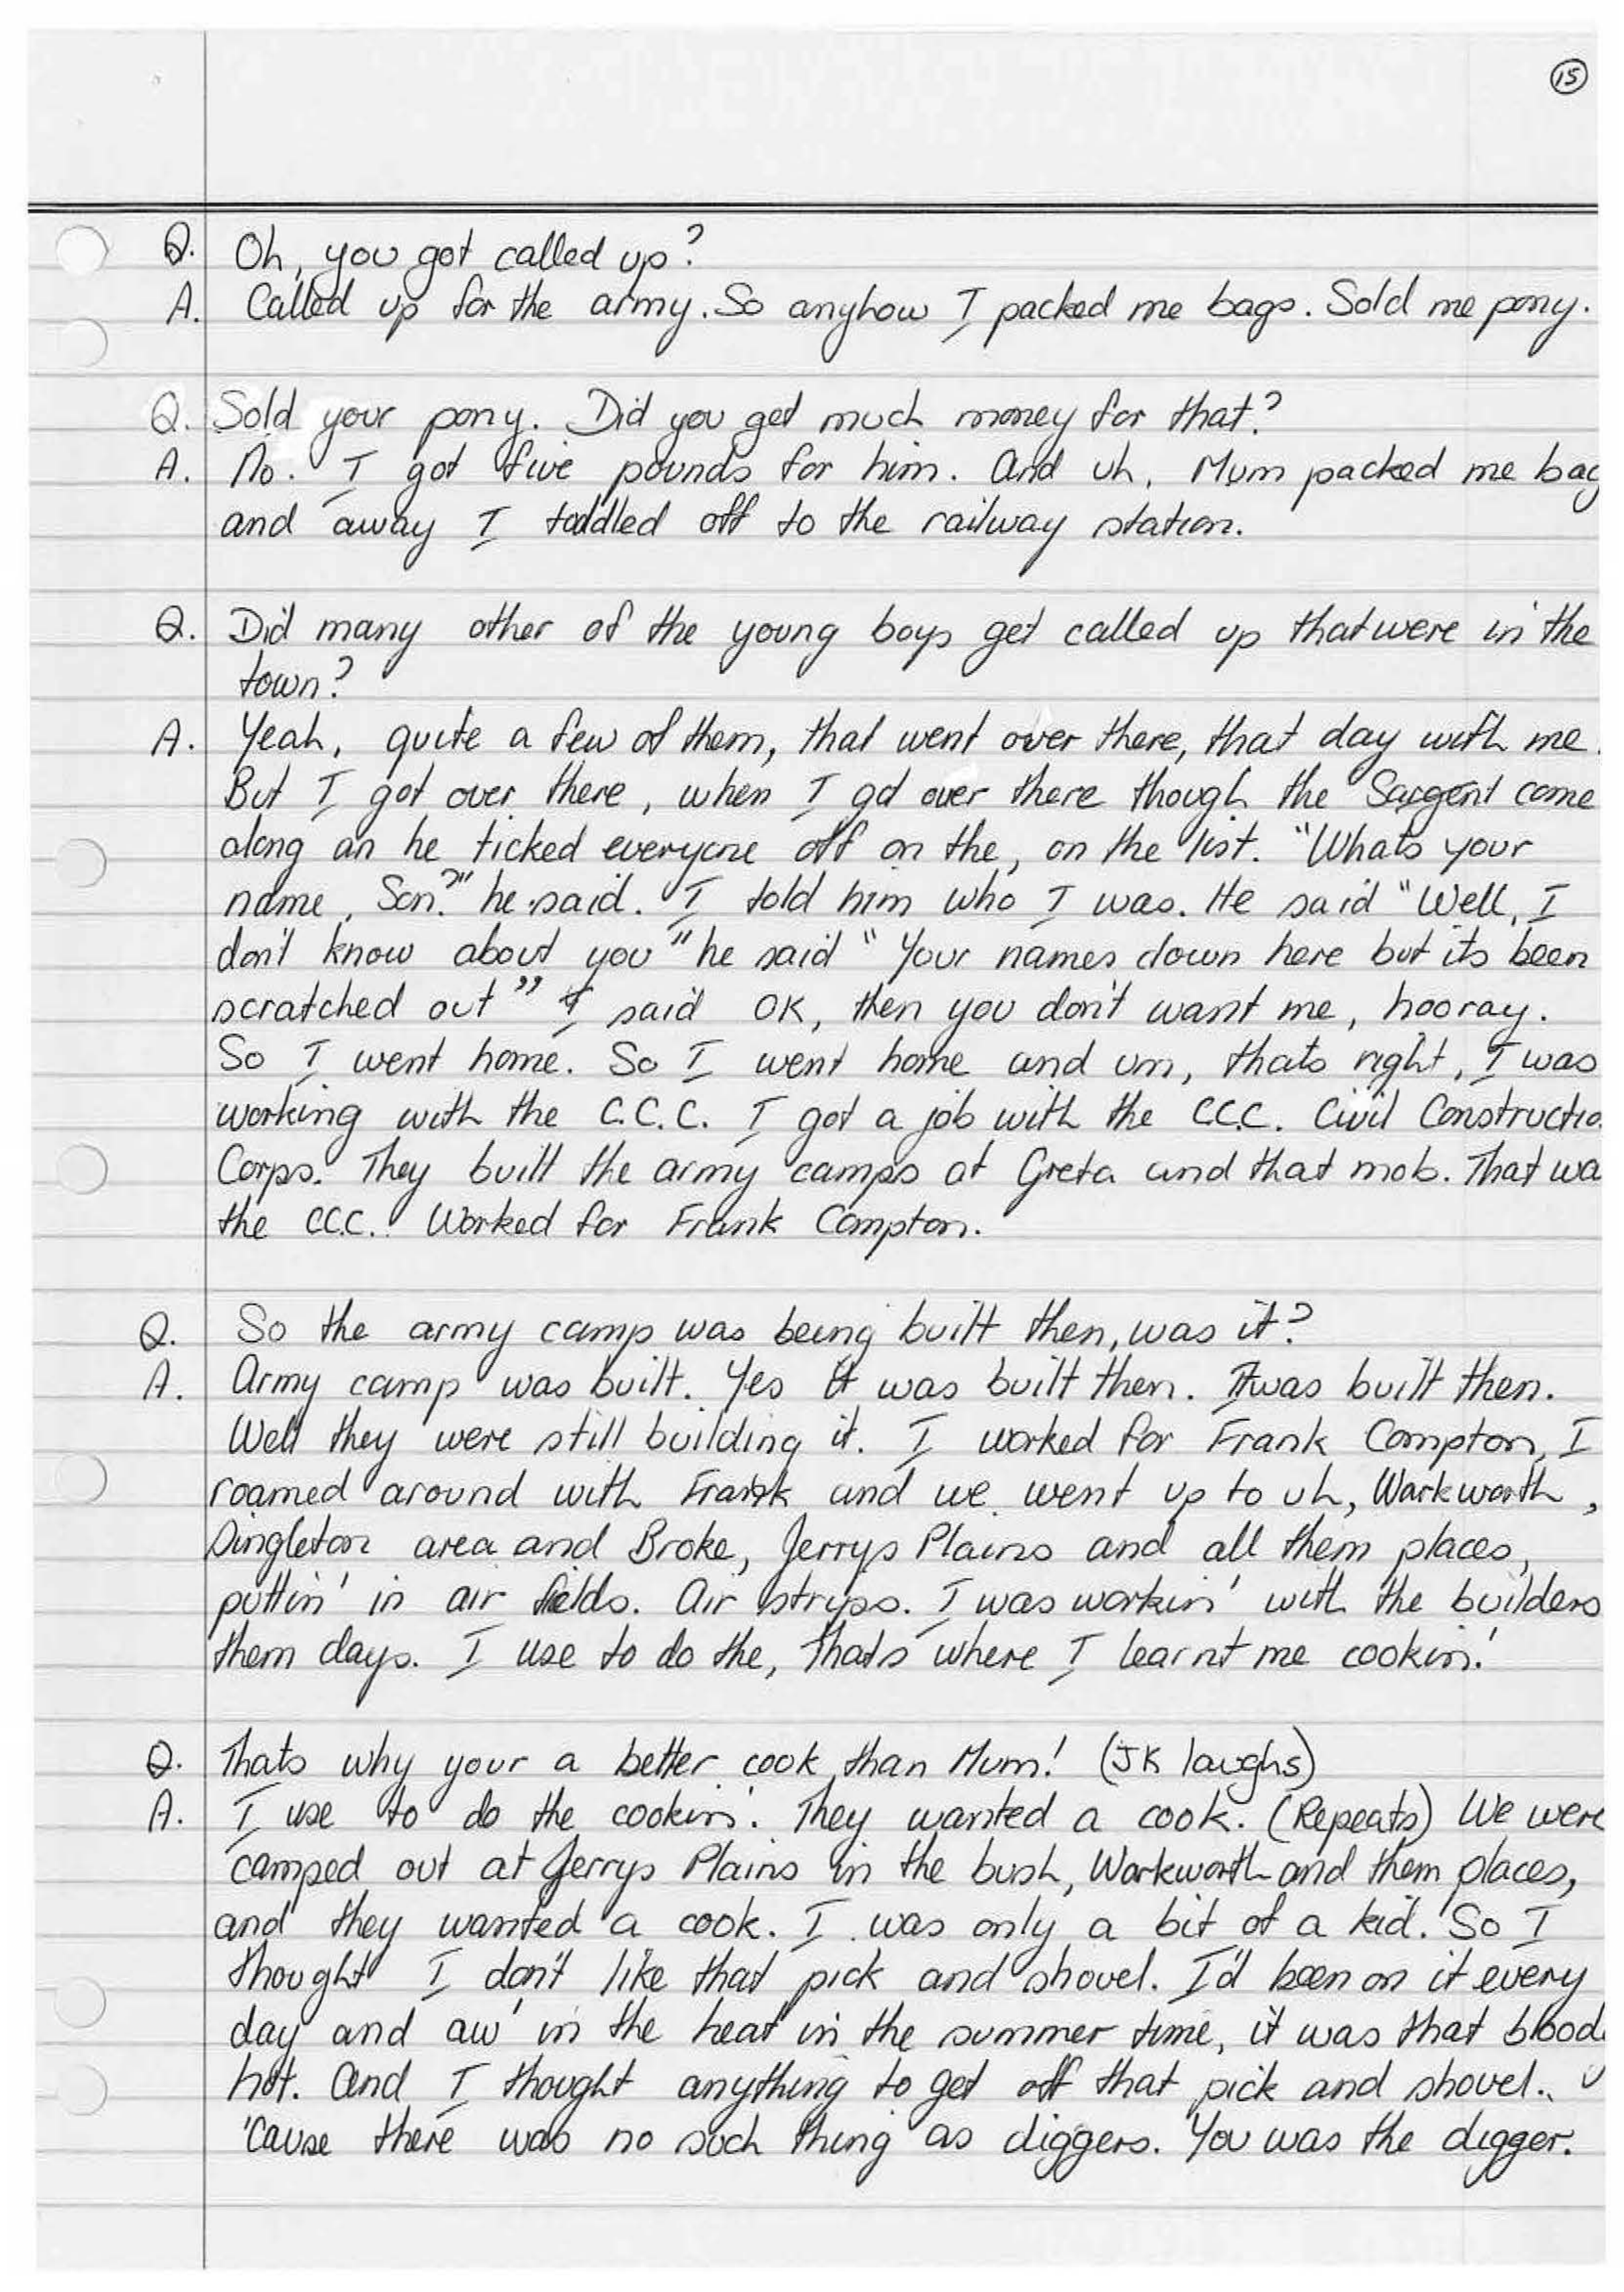 15
Q. Oh, you got called up?
A. Called up for the army. So anyhow I packed me bags. Sold me pony.
Q. Sold your pony. Did you get much money for that?
A. No. I got five pounds for him. And uh, Mum packed me bag
and away I toddled off to the railway station.
Q. Did many other of the young boys get called up that were in the
town?
A. Yeah, quite a few of them, that went over there, that day with me.
But I got over there, when I got over there though the Sargent come
along an he ticked everyone off on the, on the list. "Whats your
name, Son?" he said. I told him who I was. He said "Well, I
don't know about you" he said "Your names down here but its been
scratched out" I said OK, then you don't want me, hooray.
So I went home. So I went home and um, thats right, I was
working with the C.C.C. I got a job with the C.C.C. Civil Constructio
Corps. They built the army camps at Greta and that mob. That wa
the C.C.C. Worked for Frank Compton.
Q. So the army camp was being built then, was it?
A. Army camp was built. Yes it was built then. It was built then.
Well they were still building it. I worked for Frank Compton, I
roamed around with Frank and we went up to uh, Warkworth,
Singleton area and Broke, Jerrys Plains and all them places,
puttin' in air fields. Air strips. I was workin' with the builders
them days. I use to do the, thats where I learnt me cookin'.
Q. Thats why your a better cook than Mum! (JK laughs)
A. I use to do the cookin'. They wanted a cook. (Repeats) We were
camped out at Jerrys Plains in the bush, Warkworth and them places,
and they wanted a cook. I was only a bit of a kid. So I
thought I don't like that pick and shovel. I'd been on it every
day and aw' in the heat in the summer time, it was that blood
hot. And I thought anything to get off that pick and shovel..
'Cause there was no such thing as diggers. You was the digger.